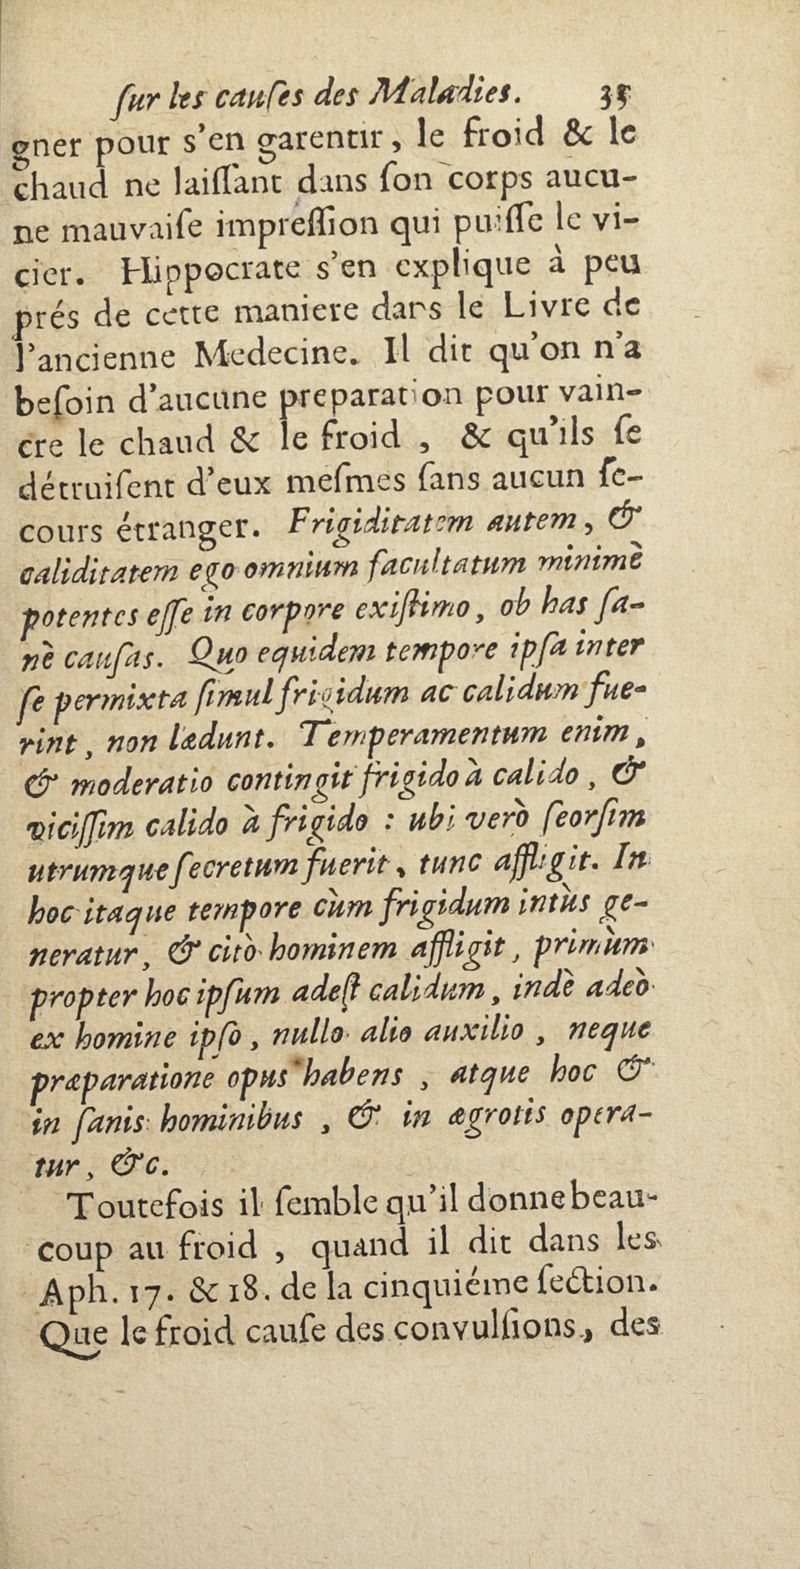 ſur les cauſes des Maladies. 35
gner pour s'en garentir, le froid & le
chaud ne laiſſant dans ſon corps aucu-
ne mauvaiſe impreſſion qui puiſſe le vi-
cier. Hippocrate s'en explique à peu
prés de cette maniere dans le Livre de
l'ancienne Medecine. Il dit qu'on n'a
beſoin d'aucune preparation pour vain-
cre le chaud & le froid , & qu'ils ſe
détruiſent d'eux meſmes ſans aucun ſe-
cours étranger. Frigiditatem autem, &
caliditatem ego omnium facultatum minimè
potentes eſſe in corpore exiſtimo, ob has ſa-
nè cauſas. Quo equidem tempore ipſa inter
ſe permixta ſimul frigidum ac calidum fue-
rint, non lædunt. Temperamentum enim,
& moderatio contingit frigido à calido, &
viciſſim calido à frigido : ubi verò ſeorſim
utrumque ſecretum fuerit, tunc affligit. In
hoc itaque tempore cùm frigidum intùs ge-
neratur, & citò hominem affligit, primùm
propter hoc ipſum adeſt calidum, indè adeò
ex homine ipſo, nullo alio auxilio, neque
præparatione opus habens , atque hoc &
in ſanis hominibus , & in ægrotis opera-
tur, &c.
Toutefois il ſemble qu'il donne beau-
coup au froid , quand il dit dans les
Aph. 17. & 18. de la cinquiéme ſection.
Que le froid cauſe des convulſions, des